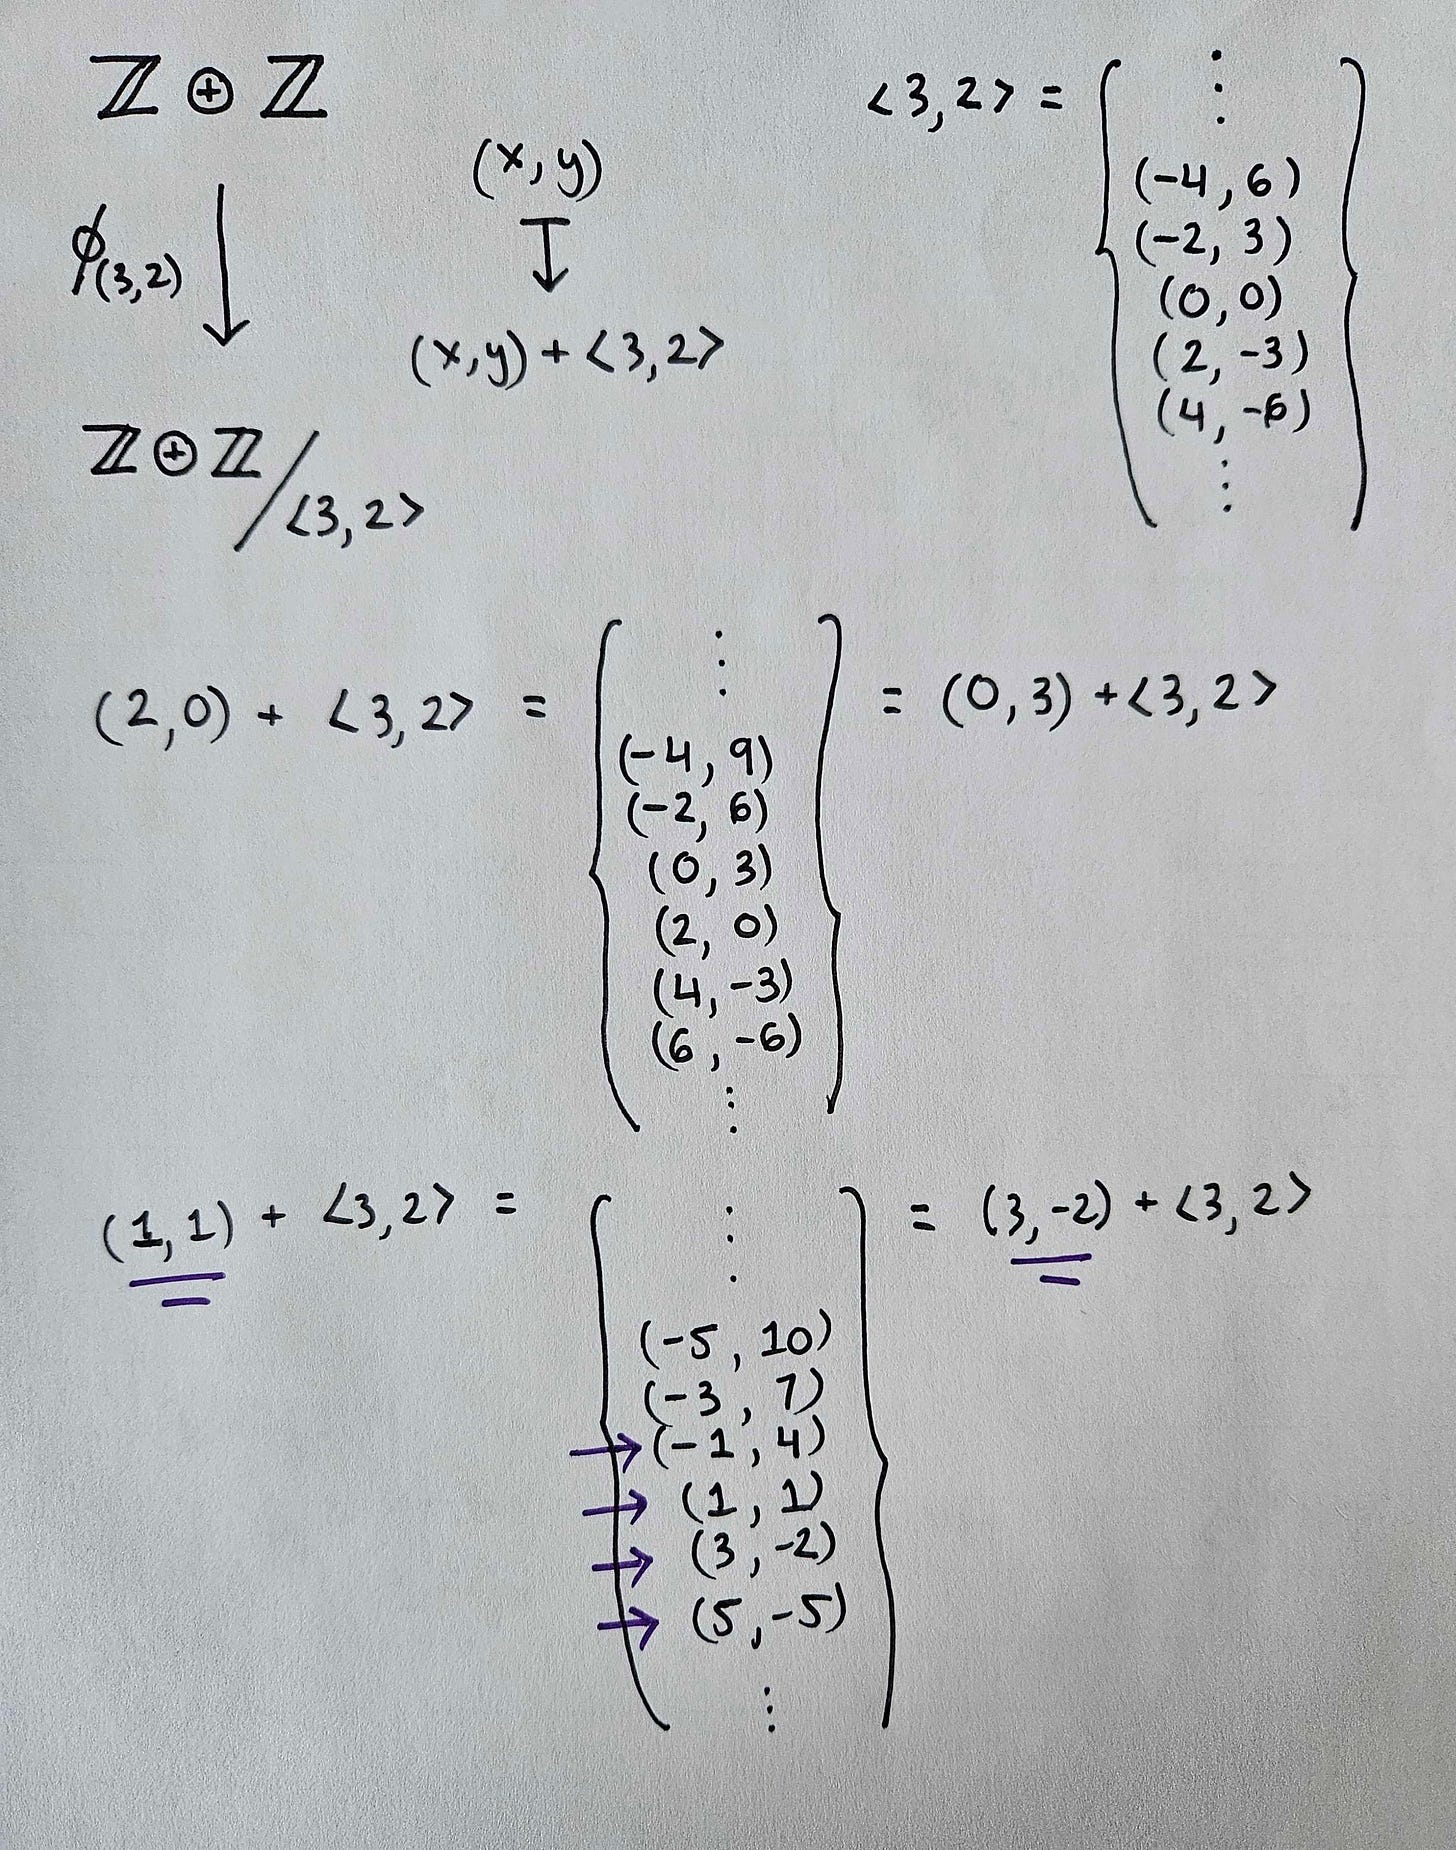 ℤ ⊕ ℤ
ϕ(3,2)
(x,y)
↧
(x,y) + <3,2>
ℤ⊕ℤ/<3,2>
<3,2> = {
⋮
(-4, 6)
(-2, 3)
(0,0)
(2, -3)
(4, -6)
⋮
}
(2,0) + <3,2> = {
⋮
(-4, 9)
(-2, 6)
(0, 3)
(2, 0)
(4, -3)
(6, -6)
⋮
} = (0,3) + <3,2>
(1,1) + <3,2> = {
⋮
(-5, 10)
(-3, 7)
→ (-1, 4)
→ (1, 1)
→ (3, -2)
→ (5, -5)
⋮
} = (3,-2) + <3,2>